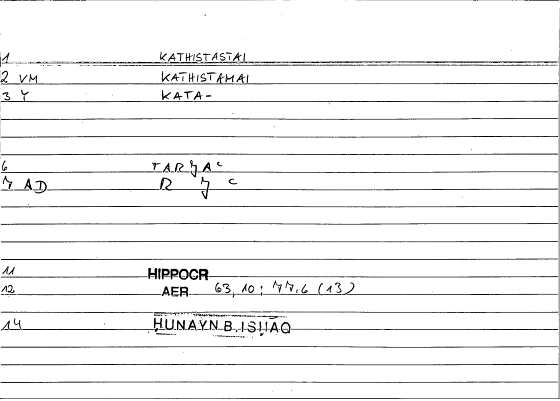 1 KATHISTASTAI
2 VM KATHISTAMAI
3 Y KATA-
6 TARȜAʿ
7 AD R Ȝ ʿ
11 HIPPOCR
12 AER 63, 10; 77,6 (13)
14 ḤUNAYN B. ISḤĀQ